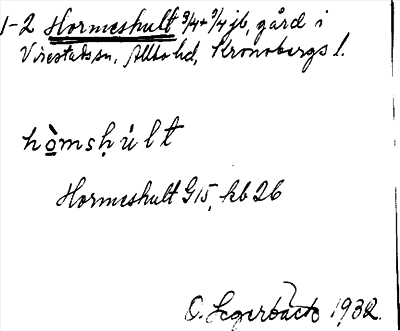 1-2 Hormeshult 3/4+3/4 jb, gård i
Virestads sn, Allbo hd, Kronobergs l.
hò̱msḥúlt
Hormeshult G15, kb 26
O. Segerbäck 1932.